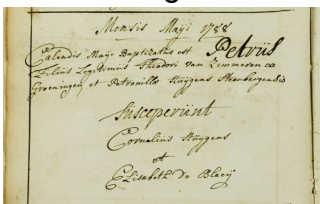 Mensis Maÿi 1788
Calendis Maÿi Baptizatus est Petrüs
Filius Legitimus Theodori van Zemmeren ex
Groeningen et Petronilla Huÿgens Steenbergensis
Susceperünt
Cornelius Hüÿgens
et
Elisabeth De Blaeÿ